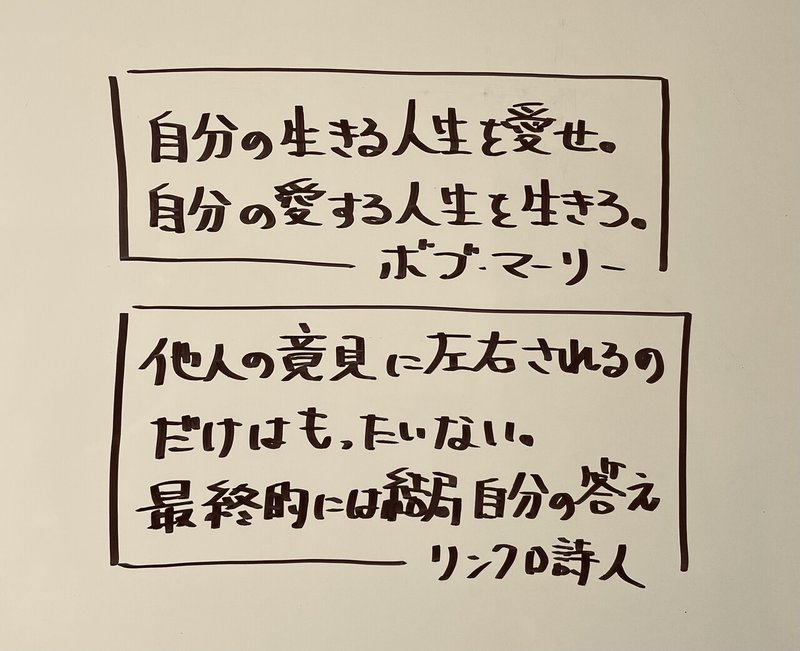 自分の生きる人生を愛せ。
自分の愛する人生を生きろ。
ボブ・マーリー
他人の意見に左右されるの
だけはもったいない。
最終的には結局自分の答え
リンクロ詩人